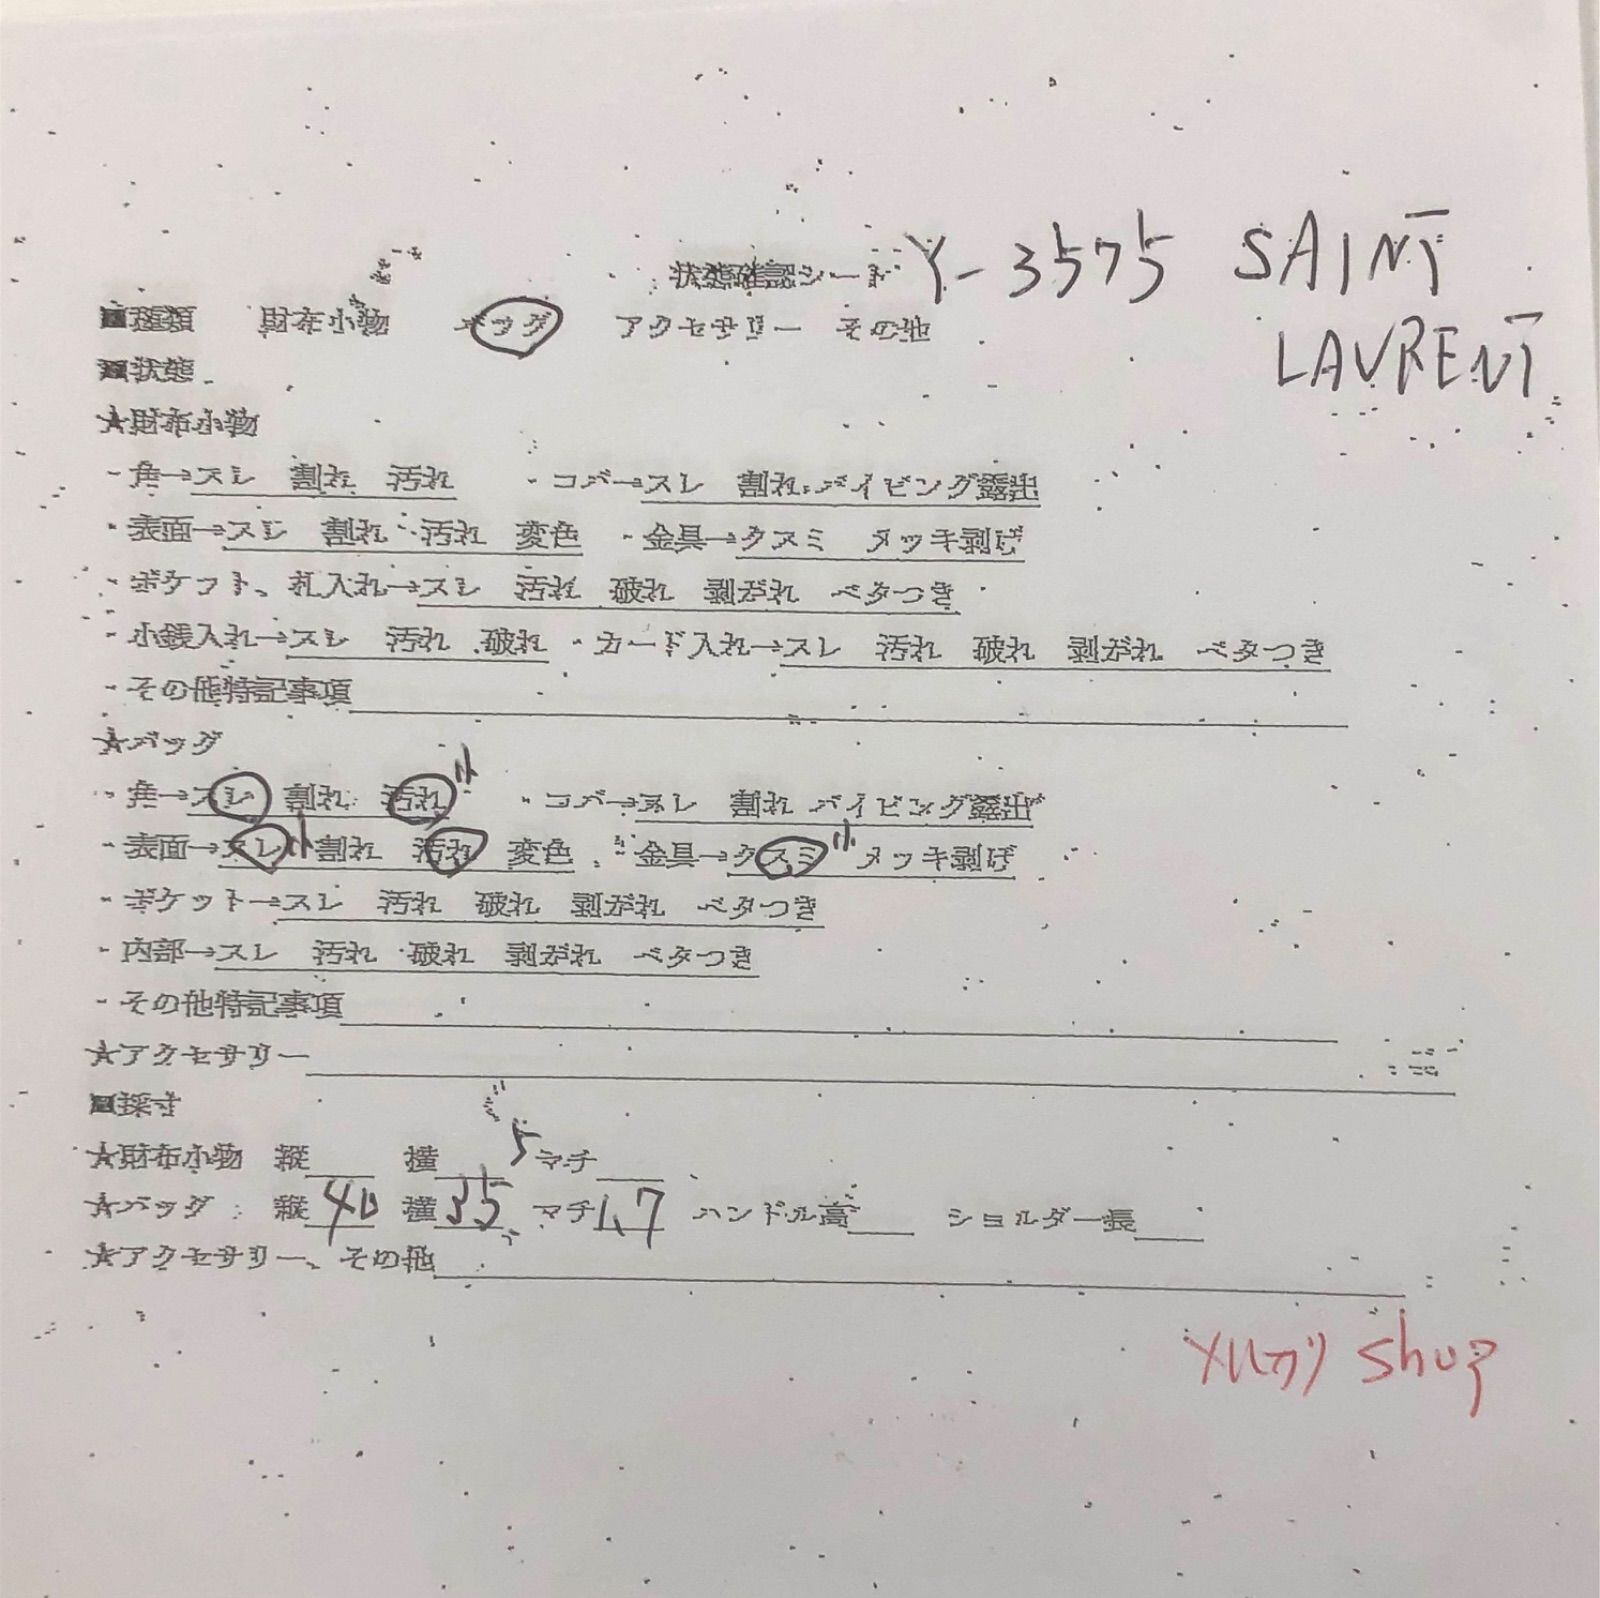 状態確認シート Y-3575 SAINT
LAURENT
■種類 財布小物 バッグ アクセサリー その他
■状態
★財布小物
・角→スレ 割れ 汚れ ・コバ→スレ 割れ パイピング露出
・表面→スレ 割れ 汚れ 変色 ・金具→クスミ メッキ剥げ
・ポケット、札入れ→スレ 汚れ 破れ 剥がれ ベタつき
・小銭入れ→スレ 汚れ 破れ ・カード入れ→スレ 汚れ 破れ 剥がれ ベタつき
・その他特記事項
★バッグ
・角→スレ 割れ 汚れ小 ・コバ→スレ 割れ パイピング露出
・表面→スレ小 割れ 汚れ 変色 ・金具→クスミ小 メッキ剥げ
・ポケット→スレ 汚れ 破れ 剥がれ ベタつき
・内部→スレ 汚れ 破れ 剥がれ ベタつき
・その他特記事項
★アクセサリー
■採寸
★財布小物 縦 横 5 マチ
★バッグ 縦40 横35 マチ1.7 ハンドル高 ショルダー長
★アクセサリー、その他
メルカリ shop